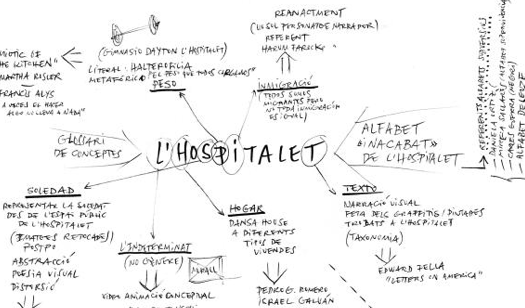 REANACTMENT
(US SUL PERSONATGES NARRADOR)
REFERENT
HARUN FAROCKI
(GIMNASIO DAYTON L'HOSPITALET)
LITERAL: HALTEROFILIA
METAFÒRICA "EL PESO QUE TODOS CARGAMOS"
PESO
INMIGRACIÓ
TODOS SOMOS
MIGRANTES PERO
NO TODA INMIGRACIÓN
ES IGUAL)
KITCHEN"
MARTHA ROSLER
FRANCIS ALYS
A VECES EL HACER
ALGO NO LLEVA A NADA"
GLOSSARI
DE CONCEPTES
L'HOSPITALET
ALFABET
"INACABAT"
DE L'HOSPITALET
REFERENTS ALFABETS DIVERSOS
— DANIELA ORTIZ
— ALFABET DECREIXE
SOLEDAD
REPRESENTAR LA SOLEDAT
DES DE L'ESPAI PÚBLIC
DE L'HOSPITALET
(IMATGES RETOCADES)
POSTPO
ABSTRACCIÓ
POESIA VISUAL
DISTORSIÓ
L'INDETERMINAT
(NO GÈNERE)
VIDEO ANIMACIÓ CONCEPTUAL
HOGAR
DANSA HOUSE
A DIFERENTS
TIPUS DE
VIVENDES
PEDRO G. ROMERO
ISRAEL GALVÁN
TEXTO
NARRACIÓ VISUAL
FETA DELS GRAFFITIS/PINTADES
TROBATS A L'HOSPITALET)
(TAXONOMIA)
EDWARD FELLA
"LETTERS ON AMERICA"